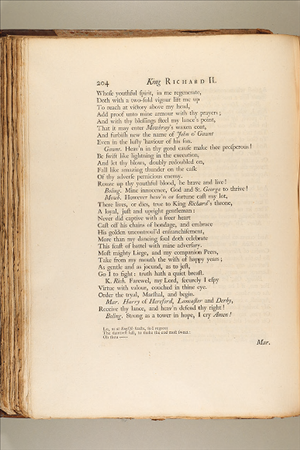 204 King RICHARD II.
Whose youthful spirit, in me regenerate,
Doth with a two-fold vigour lift me up
To reach at victory above my head,
Add proof unto mine armour with thy prayers;
And with thy blessings steel my lance's point,
That it may enter Mowbray's waxen coat,
And furbish new the name of John o' Gaunt
Even in the lusty 'haviour of his son.
Gaunt. Heav'n in thy good cause make thee prosperous!
Be swift like lightning in the execution,
And let thy blows, doubly redoubled on,
Fall like amazing thunder on the casque
Of thy adverse pernicious enemy.
Rouze up thy youthful blood, be brave and live!
Boling. Mine innocence, God and St. George to thrive!
Mowb. However heav'n or fortune cast my lot,
There lives, or dies, true to King Richard's throne,
A loyal, just and upright gentleman:
Never did captive with a freer heart
Cast off his chains of bondage, and embrace
His golden uncontroul'd enfranchisement,
More than my dancing soul doth celebrate
This feast of battel with mine adversary.
Most mighty Liege, and my companion Peers,
Take from my mouth the wish of happy years;
As gentle and as jocund, as to jest,
Go I to fight: truth hath a quiet breast.
K. Rich. Farewel, my Lord, securely I espy
Virtue with valour, couched in thine eye.
Order the tryal, Marshal, and begin.
Mar. Harry of Hereford, Lancaster and Derby,
Receive thy lance, and heav'n defend thy right!
Boling. Strong as a tower in hope, I cry Amen!
Lo, as at English feasts, so I regreet
The daintiest last, to make the end most sweet:
Oh thou
Mar.